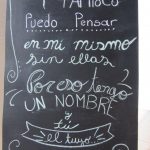 Y TAMPOCO
Puedo Pensar
en mi mismo
sin ellas
Por eso tengo
UN NOMBRE
y
tú
el tuyo.